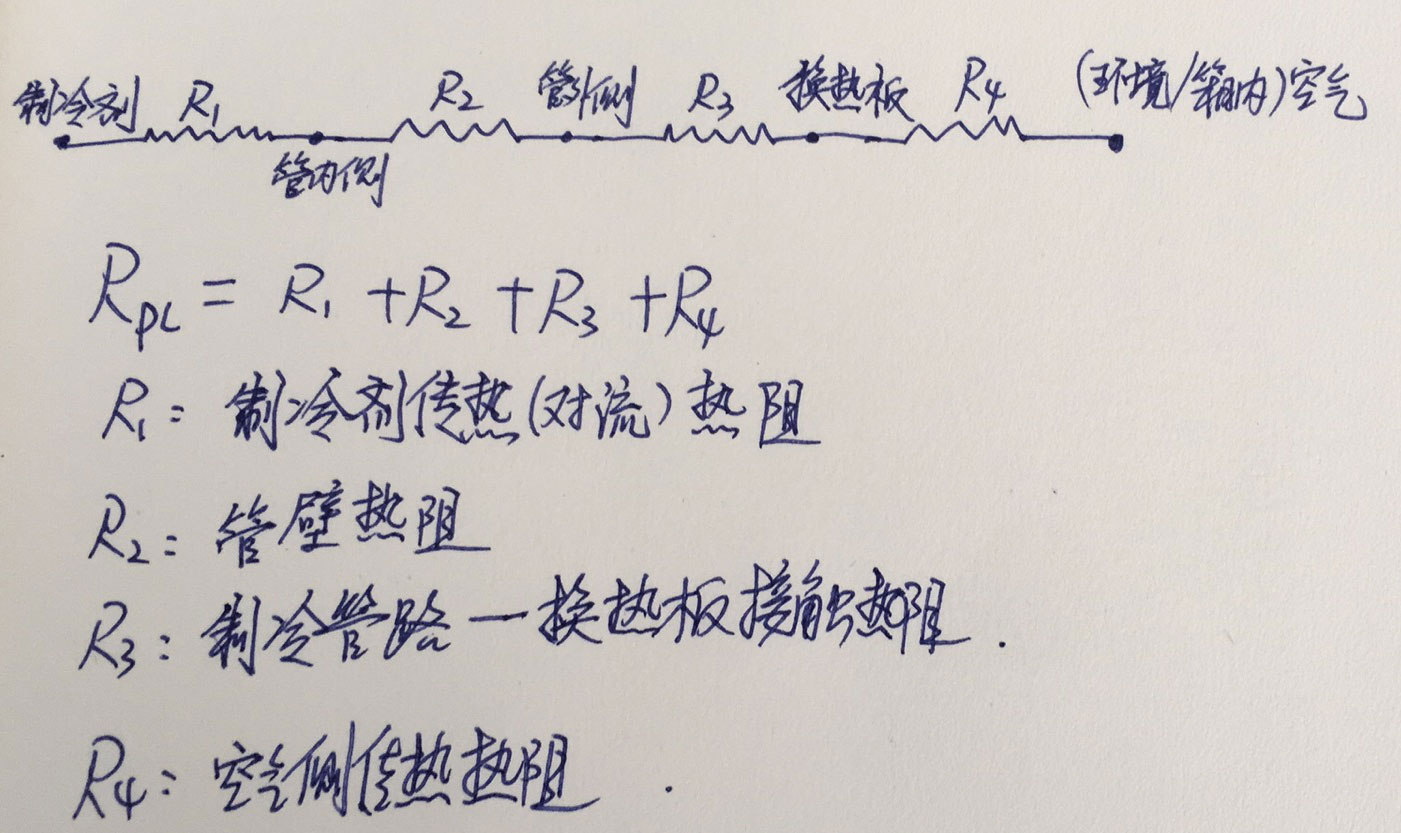 制冷剂 R₁ R₂ 管外侧 R₃ 换热板 R₄ (环境/箱内)空气
管内侧
R_PL = R₁ + R₂ + R₃ + R₄
R₁: 制冷剂传热(对流)热阻
R₂: 管壁热阻
R₃: 制冷管路—换热板接触热阻.
R₄: 空气侧传热热阻.